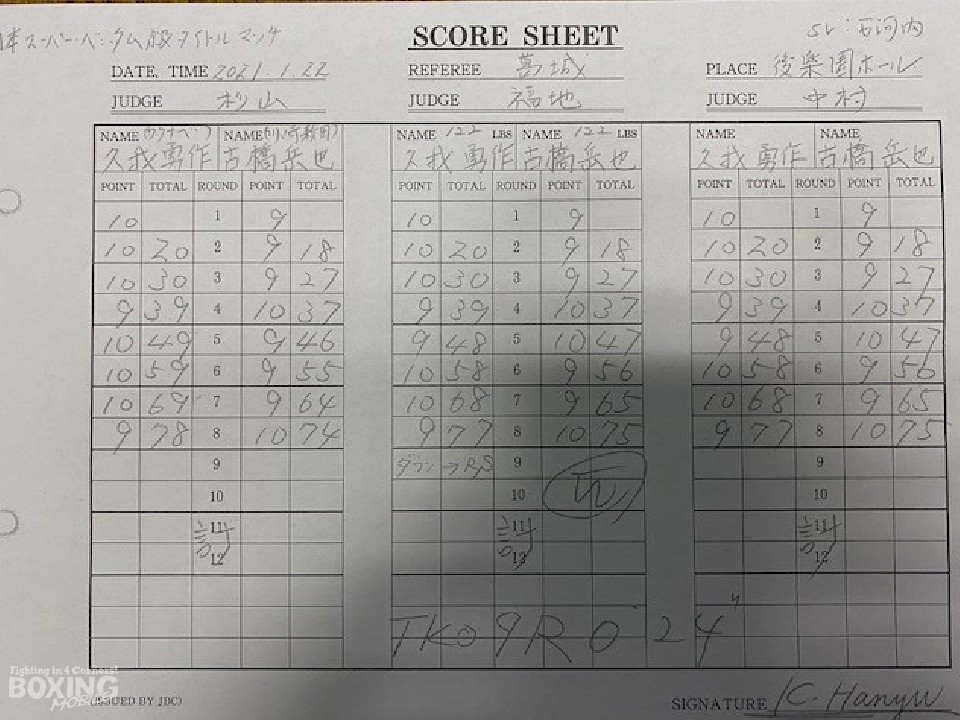 日本スーパー・バンタム級タイトルマッチ
SCORE SHEET
DATE, TIME 2021.1.22
REFEREE 葛城
PLACE 後楽園ホール
JUDGE 杉山
JUDGE 福地
JUDGE 中村
NAME (ワタナベ) NAME
NAME 122 LBS NAME 122 LBS
NAME NAME
久我勇作 古橋岳也 久我勇作 古橋岳也 久我勇作 古橋岳也
POINT TOTAL ROUND POINT TOTAL POINT TOTAL ROUND POINT TOTAL POINT TOTAL ROUND POINT TOTAL
10 1 9 10 1 9 10 1 9
10 20 2 9 18 10 20 2 9 18 10 20 2 9 18
10 30 3 9 27 10 30 3 9 27 10 30 3 9 27
9 39 4 10 37 9 39 4 10 37 9 39 4 10 37
10 49 5 9 46 9 48 5 10 47 9 48 5 10 47
10 59 6 9 55 10 58 6 9 56 10 58 6 9 56
10 69 7 9 64 10 68 7 9 65 10 68 7 9 65
9 78 8 10 74 9 77 8 10 75 9 77 8 10 75
9 ダウン→ 9 9
10 10 10
11 11 11
12 12 12
TKO 9R 0'24"
Fighting in 4 Corners!
BOXING
MOBILE
(ISSUED BY JBC)
SIGNATURE K. Hanyu